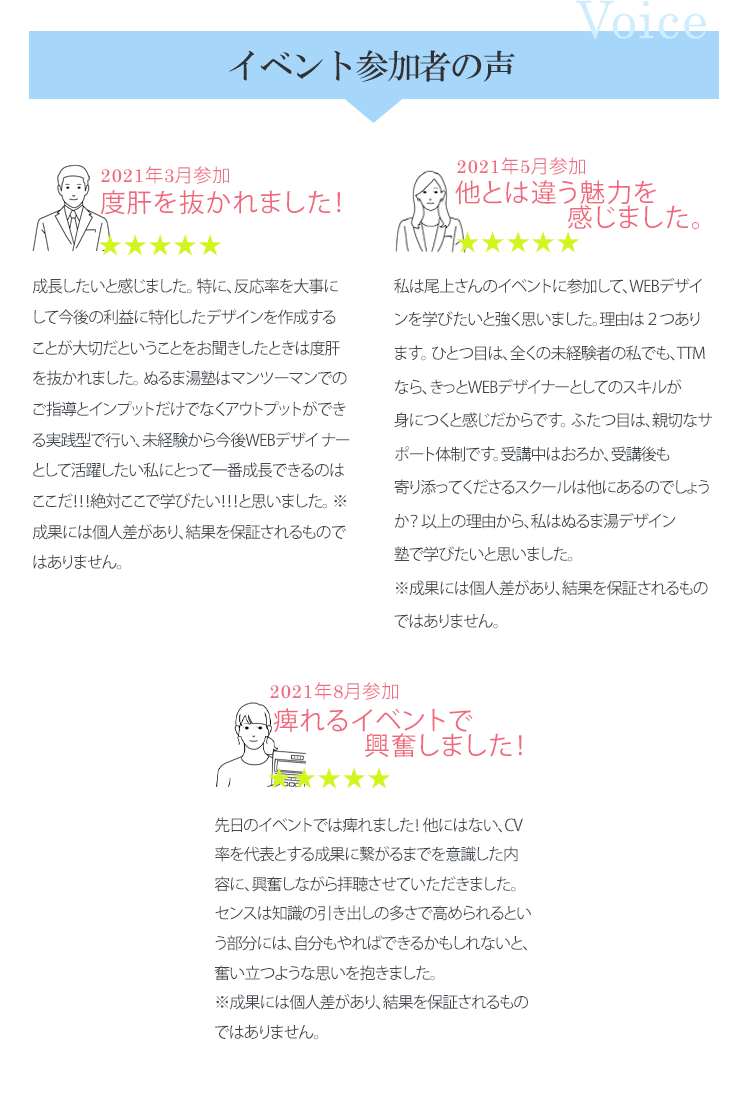 Voice
イベント参加者の声
2021年3月参加
度肝を抜かれました!
★★★★★
成長したいと感じました。特に、反応率を大事に
して今後の利益に特化したデザインを作成する
ことが大切だということをお聞きしたときは度肝
を抜かれました。ぬるま湯塾はマンツーマンでの
ご指導とインプットだけでなくアウトプットができ
る実践型で行い、未経験から今後WEBデザイナー
として活躍したい私にとって一番成長できるのは
ここだ!!!絶対ここで学びたい!!!と思いました。※
成果には個人差があり、結果を保証されるもので
はありません。
2021年5月参加
他とは違う魅力を
感じました。
★★★★★
私は尾上さんのイベントに参加して、WEBデザイ
ンを学びたいと強く思いました。理由は２つあり
ます。ひとつ目は、全くの未経験者の私でも、TTM
なら、きっとWEBデザイナーとしてのスキルが
身につくと感じだからです。ふたつ目は、親切なサ
ポート体制です。受講中はおろか、受講後も
寄り添ってくださるスクールは他にあるのでしょう
か？以上の理由から、私はぬるま湯デザイン
塾で学びたいと思いました。
※成果には個人差があり、結果を保証されるもの
ではありません。
2021年8月参加
痺れるイベントで
興奮しました!
★★★★★
先日のイベントでは痺れました!他にはない、CV
率を代表とする成果に繋がるまでを意識した内
容に、興奮しながら拝聴させていただきました。
センスは知識の引き出しの多さで高められるとい
う部分には、自分もやればできるかもしれないと、
奮い立つような思いを抱きました。
※成果には個人差があり、結果を保証されるもの
ではありません。